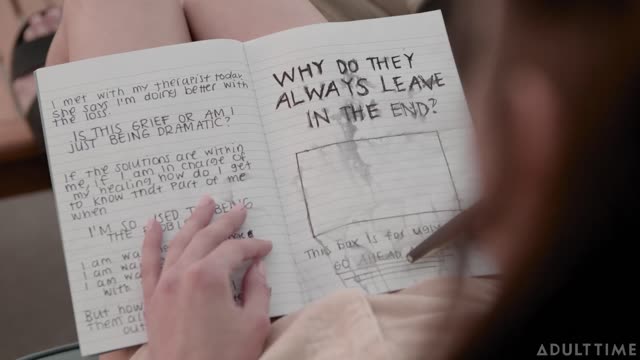 I met with my therapist today
she says I'm doing better with
the loss.
IS THIS GRIEF OR AM I
JUST BEING DRAMATIC?
If the solutions are within
me, if I am in charge of
my healing how do I get
to know that part of me
when
I'M SO USED TO BEING
THE
I am
I am
I am
with
But how
them
out
WHY DO THEY
ALWAYS LEAVE
IN THE END?
This box is for ugly
GO AHEAD
ADULT TIME